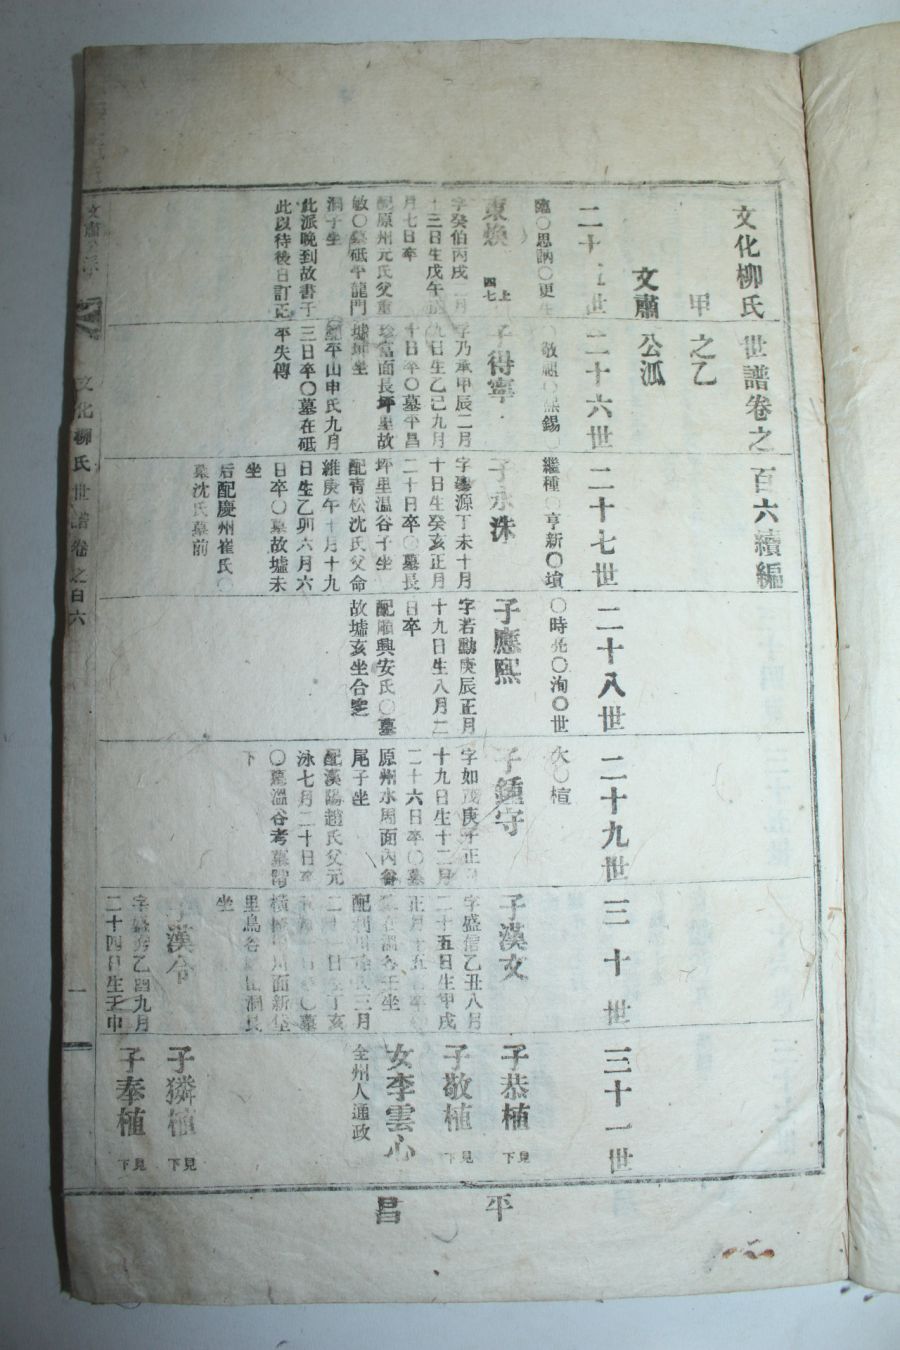 文化柳氏世譜卷之百六續編
甲之乙
文肅公派
二十五世
二十六世
二十七世
二十八世
二十九世
三十世
三十一世
繼種○亨新○
○時亮○洵○世
東煥
四七上
字癸伯丙戌二月
十三日生戊午
月七日卒
配原州元氏父重
敏○墓砥平龍門
洞子坐
此派晚到故書于
此以待後日訂正
子得寧
字乃承甲辰二月
九日生乙己九月
十日卒○墓平昌
珍富面長坪里故
墟坤坐
配平山申氏九月
三日卒○墓在砥
平失傳
子永洙
源丁未十月
十日生癸亥正月
二十日卒○墓長
坪里温谷子坐
配靑松沈氏父命
維庚午十月十九
日生乙卯六月六
日卒○墓故墟未
坐
后配慶州崔氏○
墓沈氏墓前
子應熙
字若勳庚辰正月
十九日生八月二
日卒
配順興安氏○墓
故墟亥坐合窆
子鍾守
字如茂庚子正月
十九日生十二月
二十六日卒○墓
原州水周面內谷
尾子坐
配漢陽趙氏父元
泳七月二十日卒
○墓溫谷考墓階
下
子漢文
字盛信乙丑八月
二十五日生甲戌
坐
子漢
乙酉九月
二十四日生壬申
子恭植
下見
子敬植
下見
女李雲心
全州人通政
子獜植
下見
子奉植
下見
平昌
文化柳氏世譜卷之百六
一